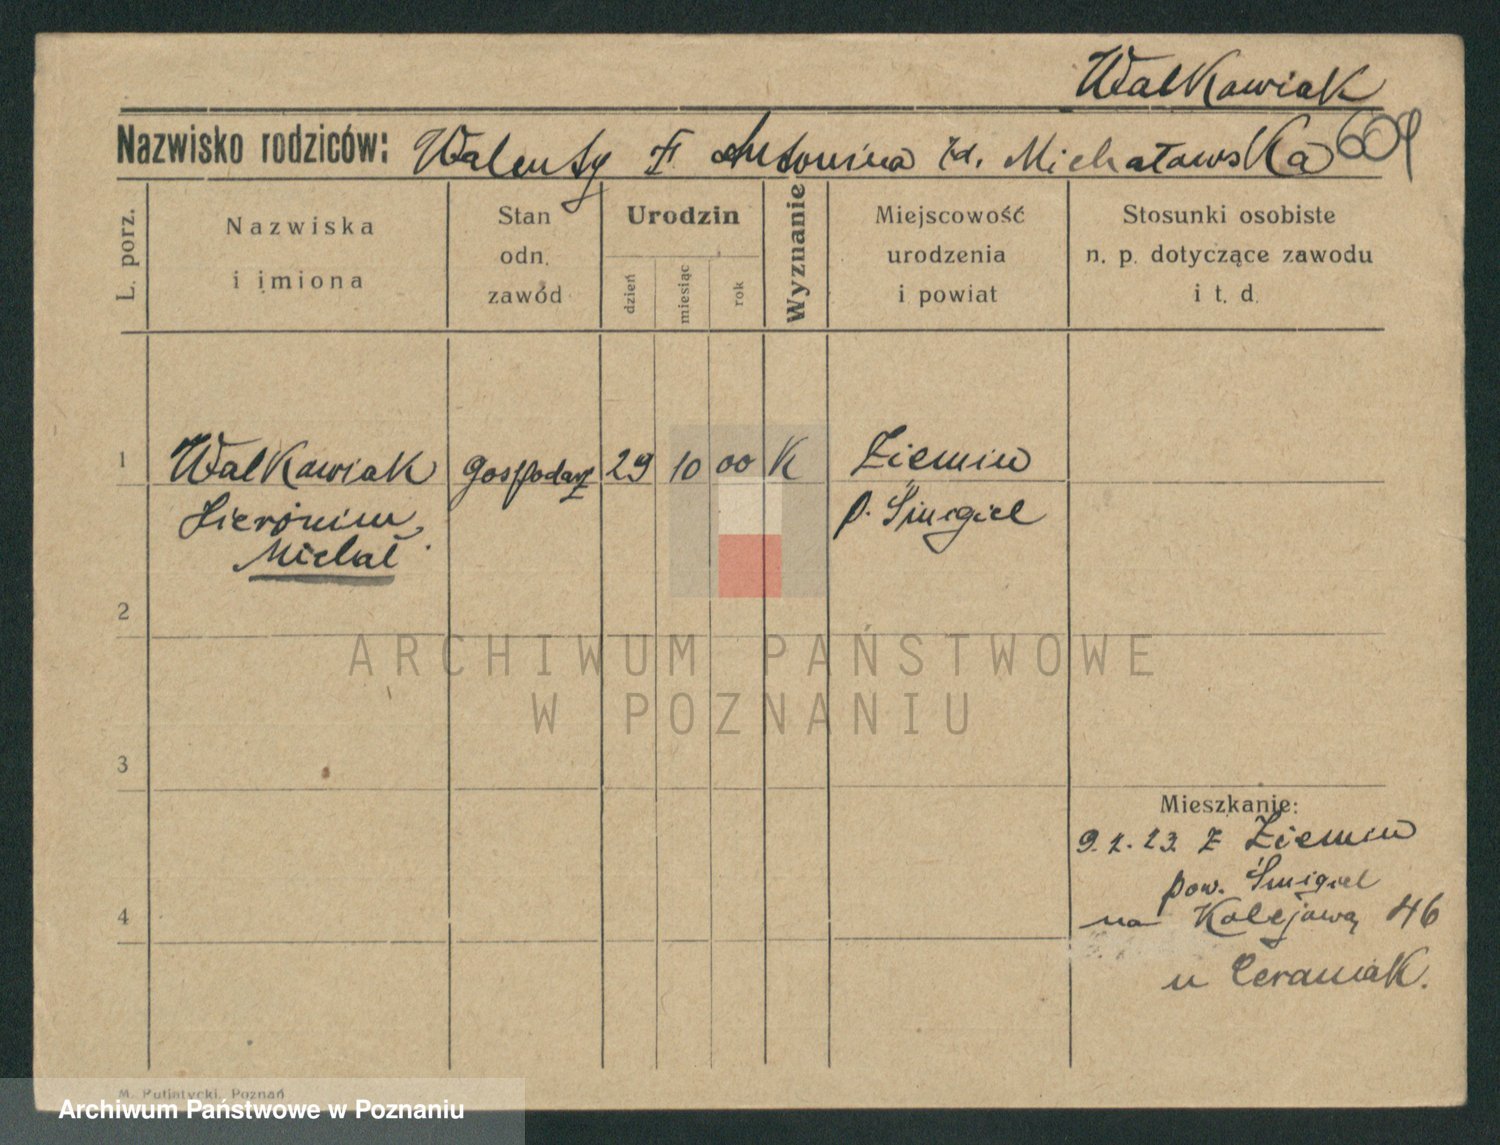 Walkowiak
Nazwisko rodziców: Walenty Antonina zd. Michałowska 609
L. porz.
Nazwiska
i imiona
Stan
odn.
zawód
Urodzin
dzień
miesiąc
rok
Wyznanie
Miejscowość
urodzenia
i powiat
Stosunki osobiste
n. p. dotyczące zawodu
i t. d.
1 Walkowiak gospodarz 29 10 00 K Ziemin
Hieronim, p. Śmigiel
Michał
2
3
Mieszkanie:
9. 2. 23. z Ziemin
pow. Śmigiel
4
na Kolejową 46
u Ceramiak.
M. Putiatycki, Poznań
ARCHIWUM PAŃSTWOWE
W POZNANIU
Archiwum Państwowe w Poznaniu